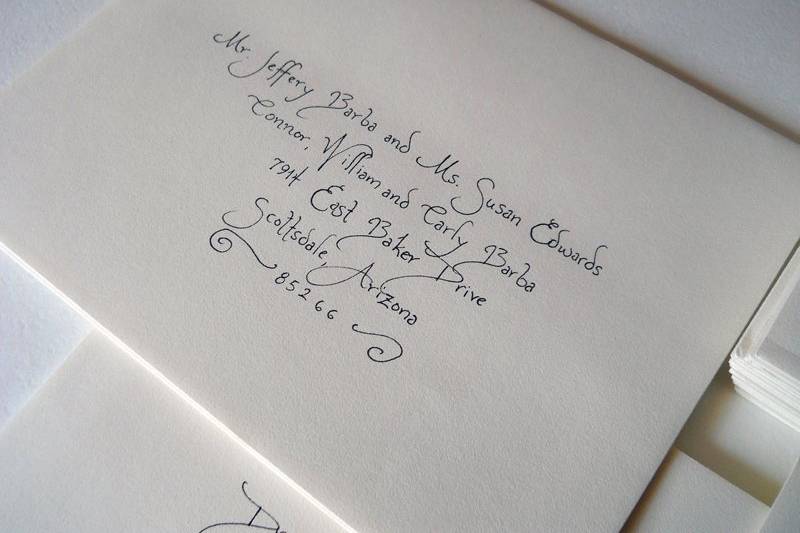 Mr. Jeffery Barba and Ms. Susan Edwards
Connor, William and Carly Barba
7914 East Baker Drive
Scottsdale, Arizona
85266